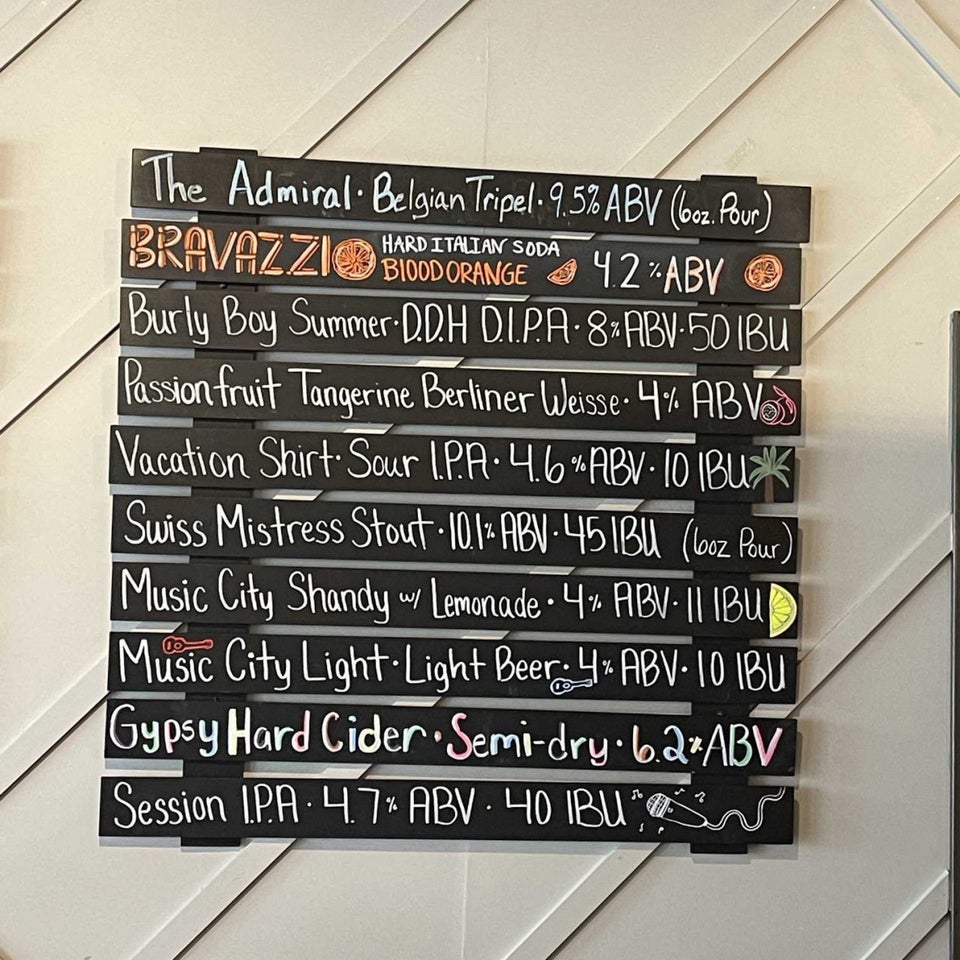 The Admiral · Belgian Tripel · 9.5% ABV (6oz. Pour)
BRAVAZZI HARD ITALIAN SODA BLOOD ORANGE 4.2% ABV
Burly Boy Summer · D.D.H D.I.P.A · 8% ABV · 50 IBU
Passionfruit Tangerine Berliner Weisse · 4% ABV
Vacation Shirt · Sour I.P.A · 4.6% ABV · 10 IBU
Swiss Mistress Stout · 10.1% ABV · 45 IBU (6oz Pour)
Music City Shandy w/ Lemonade · 4% ABV · 11 IBU
Music City Light · Light Beer · 4% ABV · 10 IBU
Gypsy Hard Cider · Semi-dry · 6.2% ABV
Session I.P.A · 4.7% ABV · 40 IBU